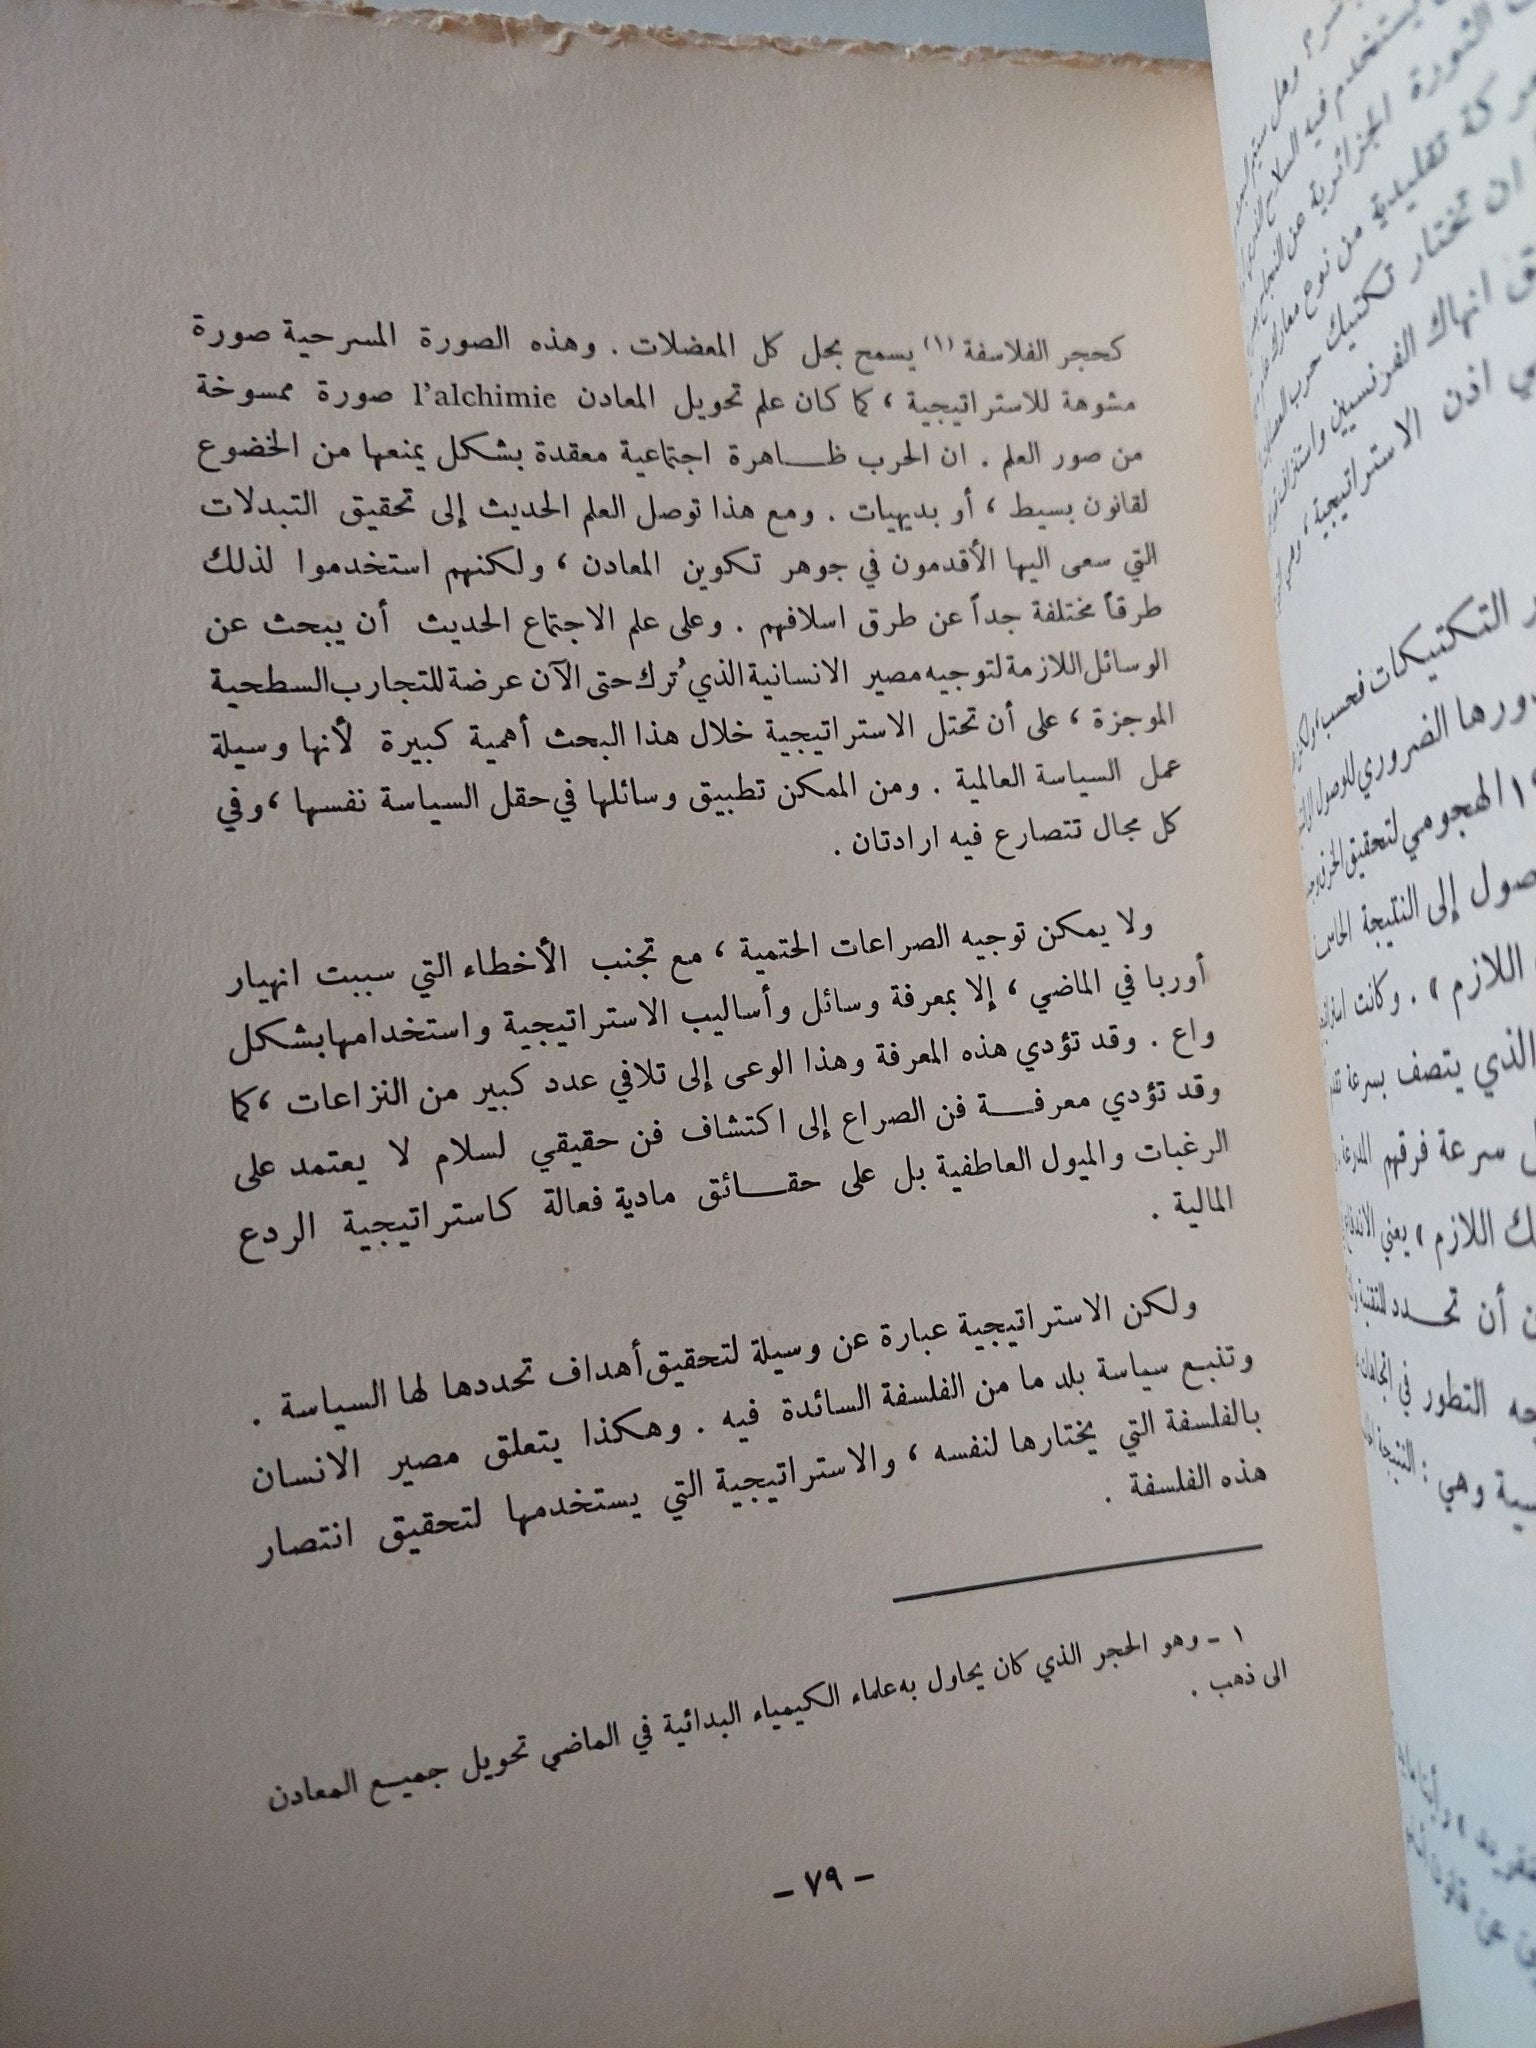 كحجر الفلاسفة (١) يسمح بحل كل المعضلات . وهذه الصورة المسرحية صورة
مشوهة للاستراتيجية ، كما كان علم تحويل المعادن l'alchimie صورة ممسوخة
من صور العلم . ان الحرب ظاهرة اجتماعية معقدة بشكل يمنعها من الخضوع
لقانون بسيط ، أو بديهيات . ومع هذا توصل العلم الحديث إلى تحقيق التبدلات
التي سعى اليها الأقدمون في جوهر تكوين المعادن ، ولكنهم استخدموا لذلك
طرقاً مختلفة جداً عن طرق اسلافهم . وعلى علم الاجتماع الحديث أن يبحث عن
الوسائل اللازمة لتوجيه مصير الانسانية الذي تُرك حتى الآن عرضة للتجارب السطحية
الموجزة ، على أن تحتل الاستراتيجية خلال هذا البحث أهمية كبيرة لأنها وسيلة
عمل السياسة العالمية . ومن الممكن تطبيق وسائلها في حقل السياسة نفسها ، وفي
كل مجال تتصارع فيه ارادتان .
ولا يمكن توجيه الصراعات الحتمية ، مع تجنب الأخطاء التي سببت انهيار
أوربا في الماضي ، إلا بمعرفة وسائل وأساليب الاستراتيجية واستخدامها بشكل
واع . وقد تؤدي هذه المعرفة وهذا الوعى إلى تلافي عدد كبير من النزاعات ، كما
وقد تؤدي معرفة فن الصراع إلى اكتشاف فن حقيقي لسلام لا يعتمد على
الرغبات والميول العاطفية بل على حقائق مادية فعالة كاستراتيجية الردع
المالية .
ولكن الاستراتيجية عبارة عن وسيلة لتحقيق أهداف تحددها لها السياسة .
وتنبع سياسة بلد ما من الفلسفة السائدة فيه . وهكذا يتعلق مصير الانسان
بالفلسفة التي يختارها لنفسه ، والاستراتيجية التي يستخدمها لتحقيق انتصار
هذه الفلسفة .
١ - وهو الحجر الذي كان يحاول به علماء الكيمياء البدائية في الماضي تحويل جميع المعادن
الى ذهب .
- ٧٩ -
الثورة الجزائرية عن
تقليدية من نوع
ان تختار تكتيك حرب
انهاك الفرنسيين
اذن الاستراتيجية ،
التكتيكات فحسب ،
دورها الضروري للوصول
الهجومي لتحقيق
إلى النتيجة
اللازم » . وكانت
الذي يتصف بسرعة
سرعة فرقهم
اللازم » يعني
أن تحدد
التطور في
وهي : النتيجة